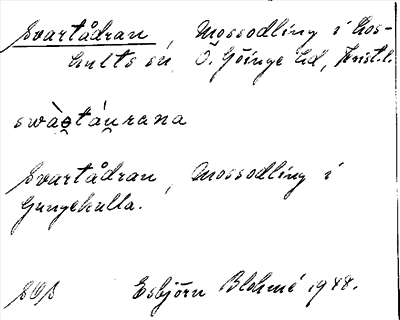 Svartådran, Mossodling i Los-
hults sn, Ö. Göinge hd, Krist.l.
swàə̯táu̯rana
Svartådran, Mossodling i
Gungehulla.
Esbjörn Blohmé 1948.